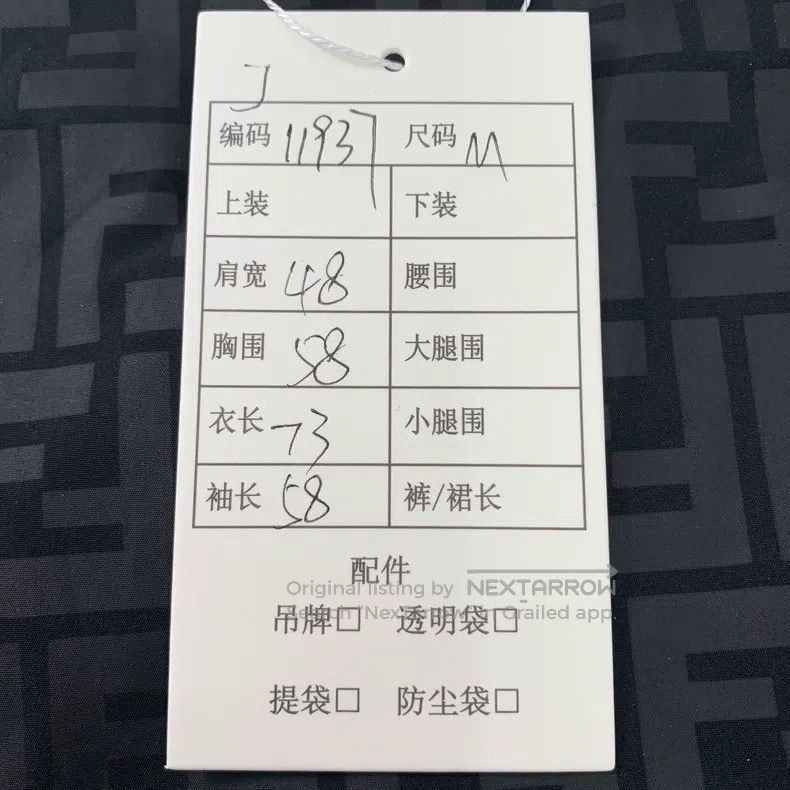 J
编码 11937 尺码 M
上装 下装
肩宽 48 腰围
胸围 58 大腿围
衣长 73 小腿围
袖长 58 裤/裙长
配件
Original listing by NEXTARROW
Search "NextArrow" in Grailed app.
吊牌□ 透明袋□
提袋□ 防尘袋□